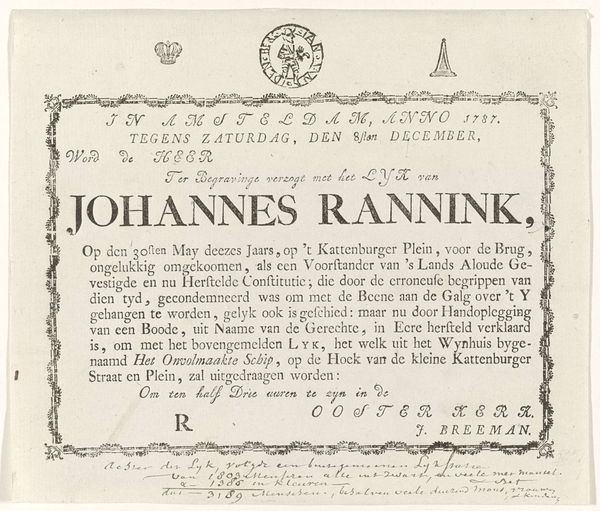 IN AMSTELDAM, ANNO 1787.
TEGENS ZATURDAG, DEN 8sten DECEMBER,
Word de HEER
Ter Begravinge verzogt met het LYK van
JOHANNES RANNINK,
Op den 30sten May deezes Jaars, op 't Kattenburger Plein, voor de Brug,
ongelukkig omgekoomen, als een Voorstander van 's Lands Aloude Ge-
vestigde en nu Herstelde Constitutie; die door de erroneuse begrippen van
dien tyd, gecondemneerd was om met de Beene aan de Galg over 't Y
gehangen te worden, gelyk ook is geschied: maar nu door Handoplegging
van een Boode, uit Naame van de Gerechte, in Eere hersteld verklaard
is, om met het bovengemelden LYK, het welk uit het Wynhuis byge-
naamd Het Onvolmaakte Schip, op de Hoek van de kleine Kattenburger
Straat en Plein, zal uitgedraagen worden:
Om ten half Drie uuren te zyn in de
OOSTER KERK.
R
J. BREEMAN.
Achter der Lyk, volgde een
van 1803 Menschen alle in't zwart, en veele met mantel.
1386 in Kleuren
3189 Menschen, behalven veele duizend